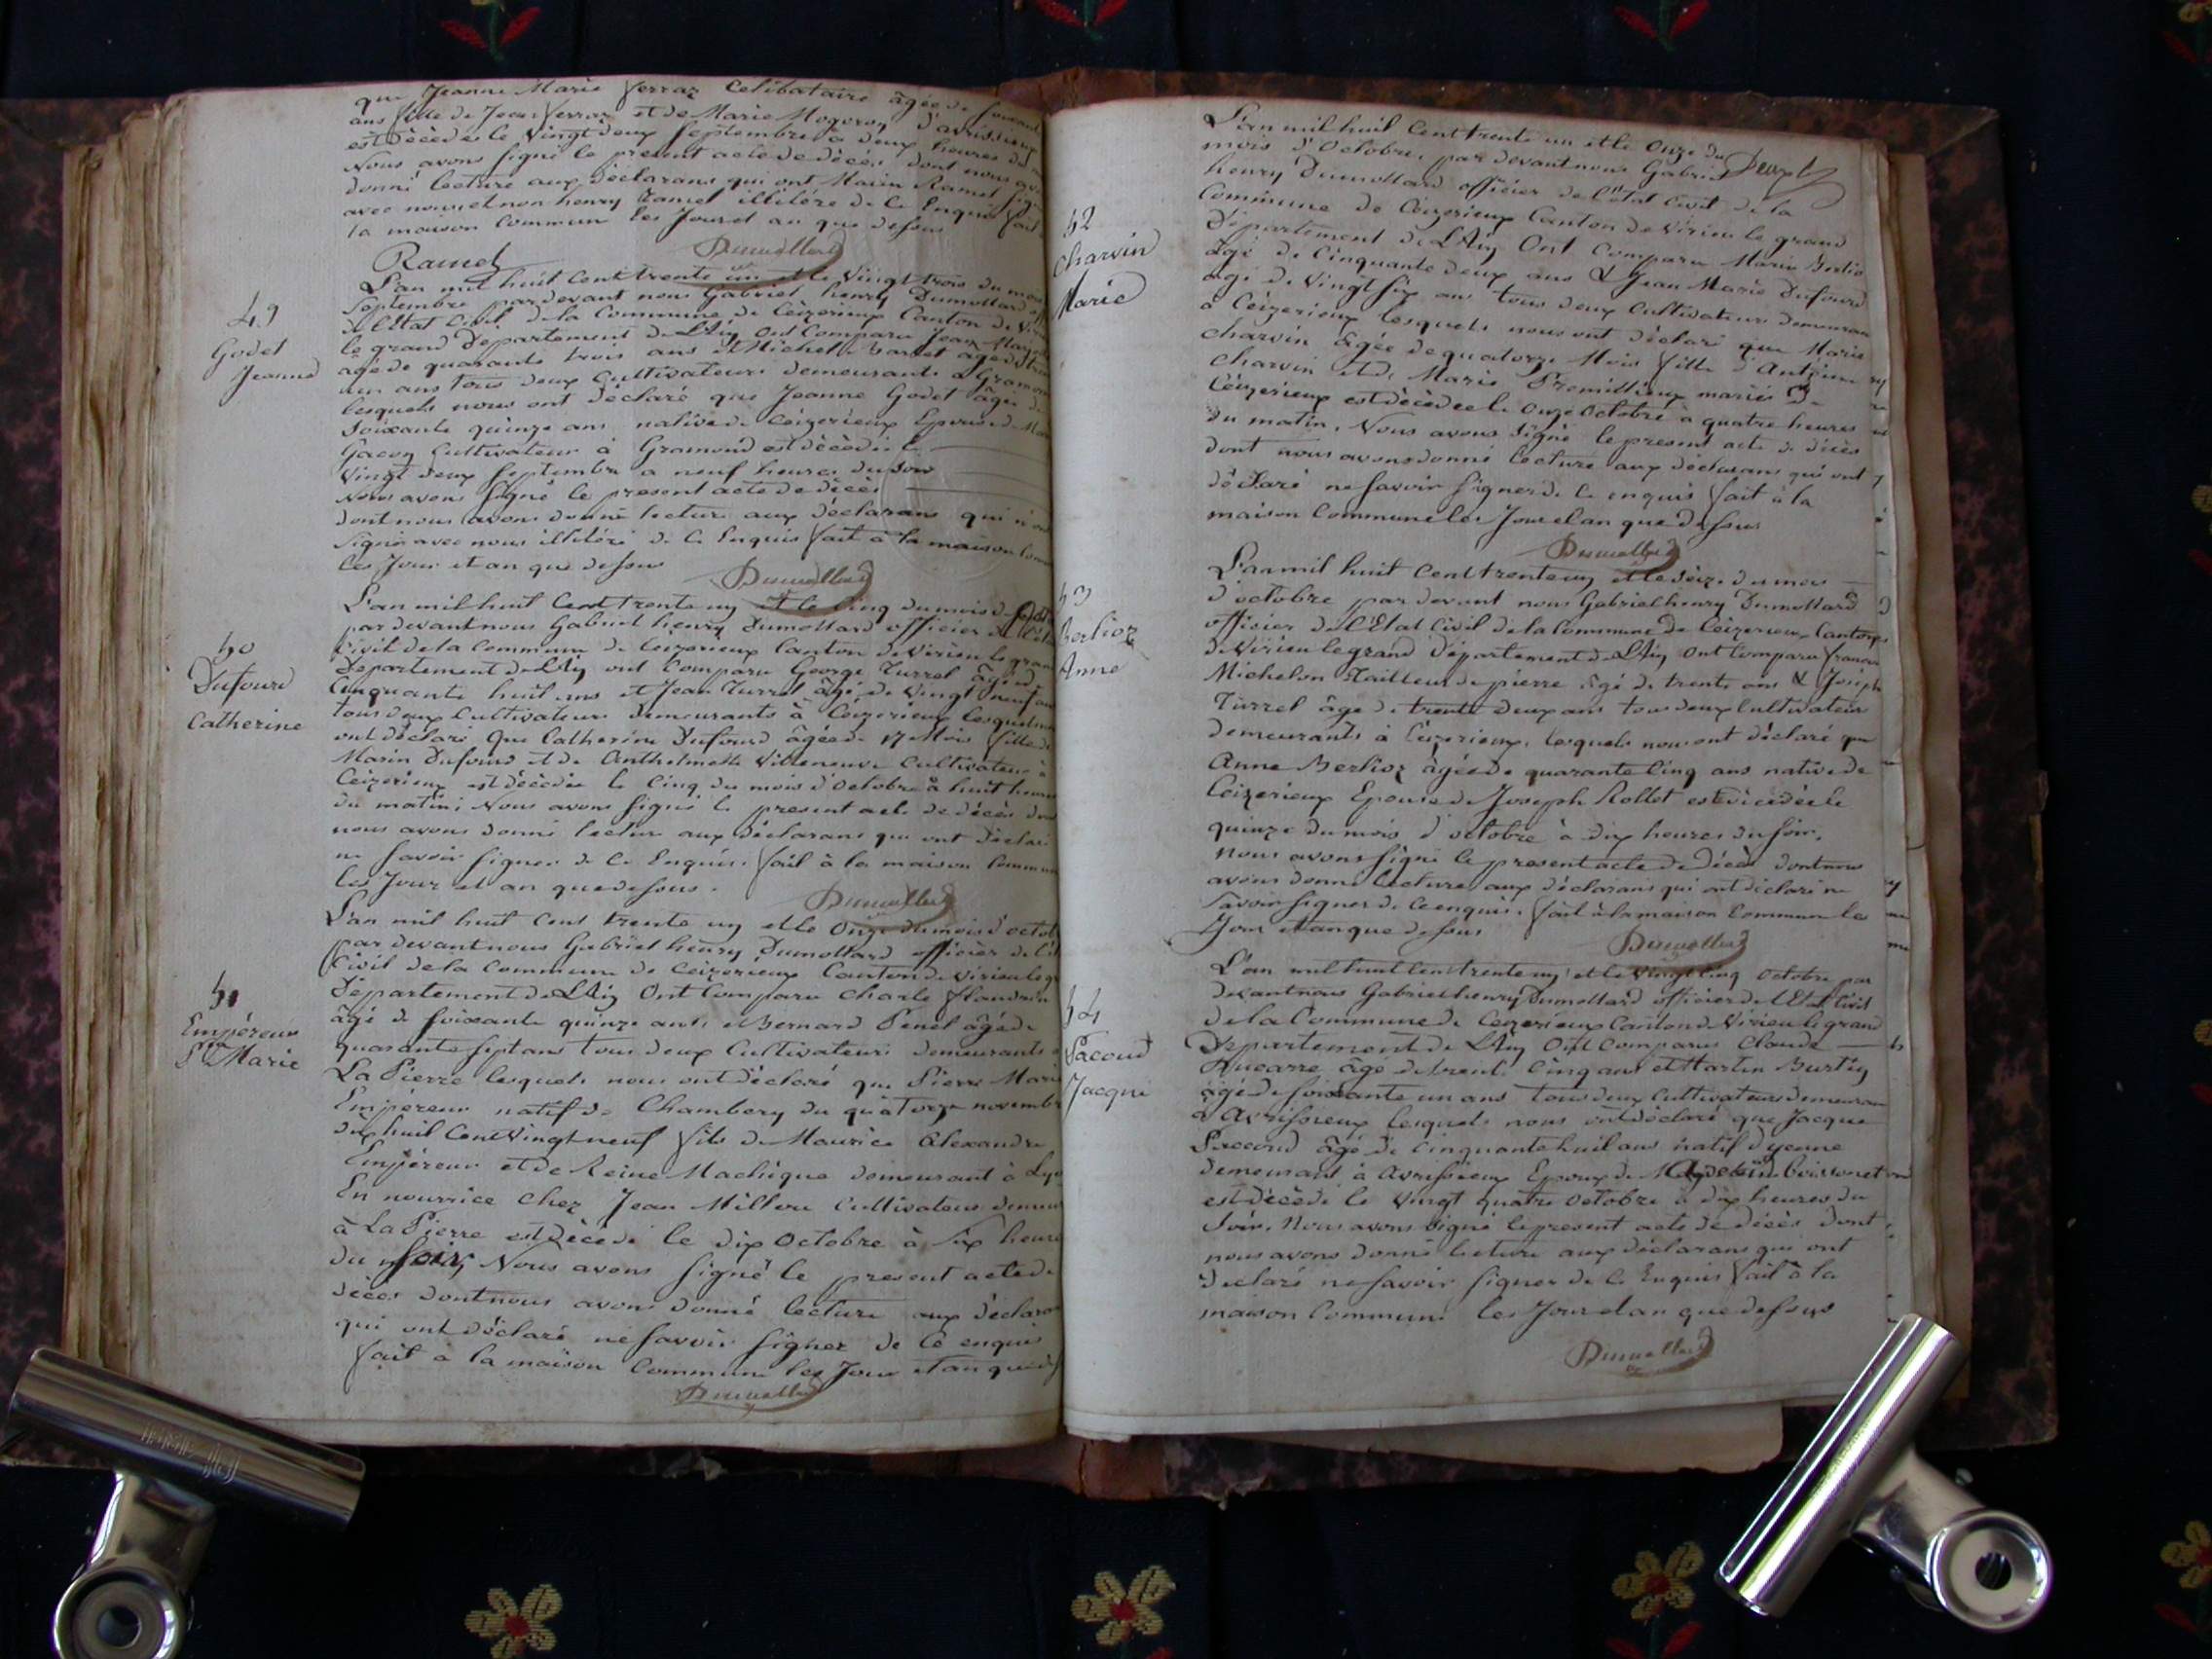 que Jeanne Marie ferraz Celibataire âgée de soixante
ans fille de Jean ferraz et de Marie Mogoroz d'avrissieux
est Décèdée le Vingt deux Septembre à deux heures du
Nous avons signé le present acte de décès dont nous avons
donné lecture aux déclarans qui ont Marin Ramel signé
avec nous et non henry Ramel illitéré de Ce Enquis fait
la maison Commun les Jour et an que dessus
Ramel Dumollard
49
Godet
Jeanne
L'an mil huit Cent trente un et le Vingt trois du mois
Septembre par devant nous Gabriel henry Dumollard
de l'Etat Civil de la Commune de Ceizerieux Canton de Virieu
le grand Departement de L'Ain Ont Comparu Jean Marie
agé de quarante trois ans et Michel agé de
un ans tous deux Cultivateurs demeurants à Gramond
lesquels nous ont déclaré que Jeanne Godet âgée de
Soixante quinze ans native de Ceizerieux Epouse de
Gacon Cultivateur à Gramond est décèdée le
Vingt deux Septembre a neuf heures du soir
Nous avons signé le present acte de décès
dont nous avons donné lecture aux déclarans qui n'ont
signé avec nous illitéré de Ce Enquis fait à la maison Com
les Jour et an que dessus
Dumollard
50
Dufourd
Catherine
L'an mil huit Cent trente un et le Cinq du mois d'
par devant nous Gabriel henry Dumollard officier de l'Etat
Civil de la Commune de Ceizerieux Canton de Virieu le grand
Departement de L'Ain ont Comparu George Turrel âgé de
Cinquante huit ans et Jean Turrel âgé de Vingt neuf ans
tous deux Cultivateurs demeurants à Ceizerieux lesquels nous
ont déclaré Que Catherine Dufourd âgée de 17 Mois fille de
Marin Dufourd et de Anthelmette Villeneuve Cultivateur à
Ceizerieux est décèdée le Cinq du mois d'Octobre à huit heures
du matin; Nous avons signé le present acte de décès dont
nous avons donné lecture aux déclarans qui ont déclaré
ne savoir signer de Ce Enquis. fait à la maison Commun
les Jour et an que dessus.
Dumollard
51
Empéreur
P.re Marie
L'an mil huit Cent trente un et le Onze du mois d'octob
par devant nous Gabriel henry Dumollard officier de l'Et
Civil de la Commune de Ceizerieux Canton de Virieu le gr
Departement de L'Ain Ont Comparu Charle flandrin
âgé de soixante quinze ans et Bernard Penet âgé de
quarante sept ans tous deux Cultivateurs demeurants à
La Pierre lesquels nous ont déclaré que Pierre Marie
Empéreur natif de Chambery du quatorze novembre
dix huit Cent Vingt neuf fils de Maurice Alexandre
Empéreur et de Reine Machique demeurant à Lyon
En nourrice Chez Jean Cultivateur demeur
à La Pierre est Décèdé le dix Octobre à Six heures
du soir, Nous avons signé le present acte de
décès dont nous avons donné lecture aux déclaran
qui ont déclaré ne savoir signer de Ce enquis
fait à la maison Commune les Jour et an que dess
Dumollard
52
Charvin
Marie
L'an mil huit Cent trente un et le Onze du
mois d'Octobre, par devant nous Gabriel
henry Dumollard officier de l'état Civil de la
Commune de Ceizerieux Canton de Virieu le grand
Département de L'Ain Ont Comparu Marin Berlio
âgé de Cinquante deux ans & Jean Marie Dufourd
agé de Vingt six ans tous deux Cultivateurs demeuran
à Ceizerieux lesquels nous ont déclaré que Marie
Charvin âgée de quatorze Mois fille d'Antoine
Charvin et de Marie Promillieux mariés de
Ceizerieux est décèdée le Onze Octobre à quatre heures
du matin. Nous avons signé le present acte de décès
dont nous avons donné lecture aux déclarans qui ont
déclaré ne savoir signer de Ce enquis fait à la
maison Commune les Jour et an que dessus
Dumollard
53
Berlioz
Anne
L'an mil huit Cent trente un et le Seize du mois
d'octobre par devant nous Gabriel henry Dumollard
officier de l'Etat Civil de la Commune de Ceizerieux Canton
de Virieu le grand Département de L'Ain Ont Comparu françois
Michelon Tailleur de pierre âgé de trente ans & Joseph
Turrel âgé de trente deux ans tous deux Cultivateur
demeurants à Ceizerieux, lesquels nous ont déclaré que
Anne Berlioz âgée de quarante Cinq ans native de
Ceizerieux Epouse de Joseph Rollet est décèdée le
quinze du mois d'octobre à dix heures du soir.
Nous avons signé le present acte de Décès dont nous
avons donné lecture aux déclarans qui ont déclaré ne
savoir signer de Ce enquis. fait à la maison Commun les
Jour et an que dessus
Dumollard
54
Pacoud
Jacque
L'an mil huit Cent trente un et le Vingt Cinq Octobre par
devant nous Gabriel henry Dumollard officier de l'Etat Civil
de la Commune de Ceizerieux Canton de Virieu le grand
Département de L'Ain Ont Comparus Claude
Ducarre âgé de trente Cinq ans et Martin Burtin
âgé de soixante un ans tous deux Cultivateurs demeuran
à Avrissieux lesquels nous ont déclaré que Jacque
Paccoud âgé de Cinquante huit ans natif d'yenne
demeurant à Avrissieux Epoux de Magdeleine Boissonet
est décèdé le Vingt quatre Octobre à dix heures du
Soir. Nous avons signé le present acte de décès dont
nous avons donné lecture aux déclarans qui ont
declaré ne savoir signer de Ce Enquis fait à la
maison Commune les Jour et an que dessus
Dumollard